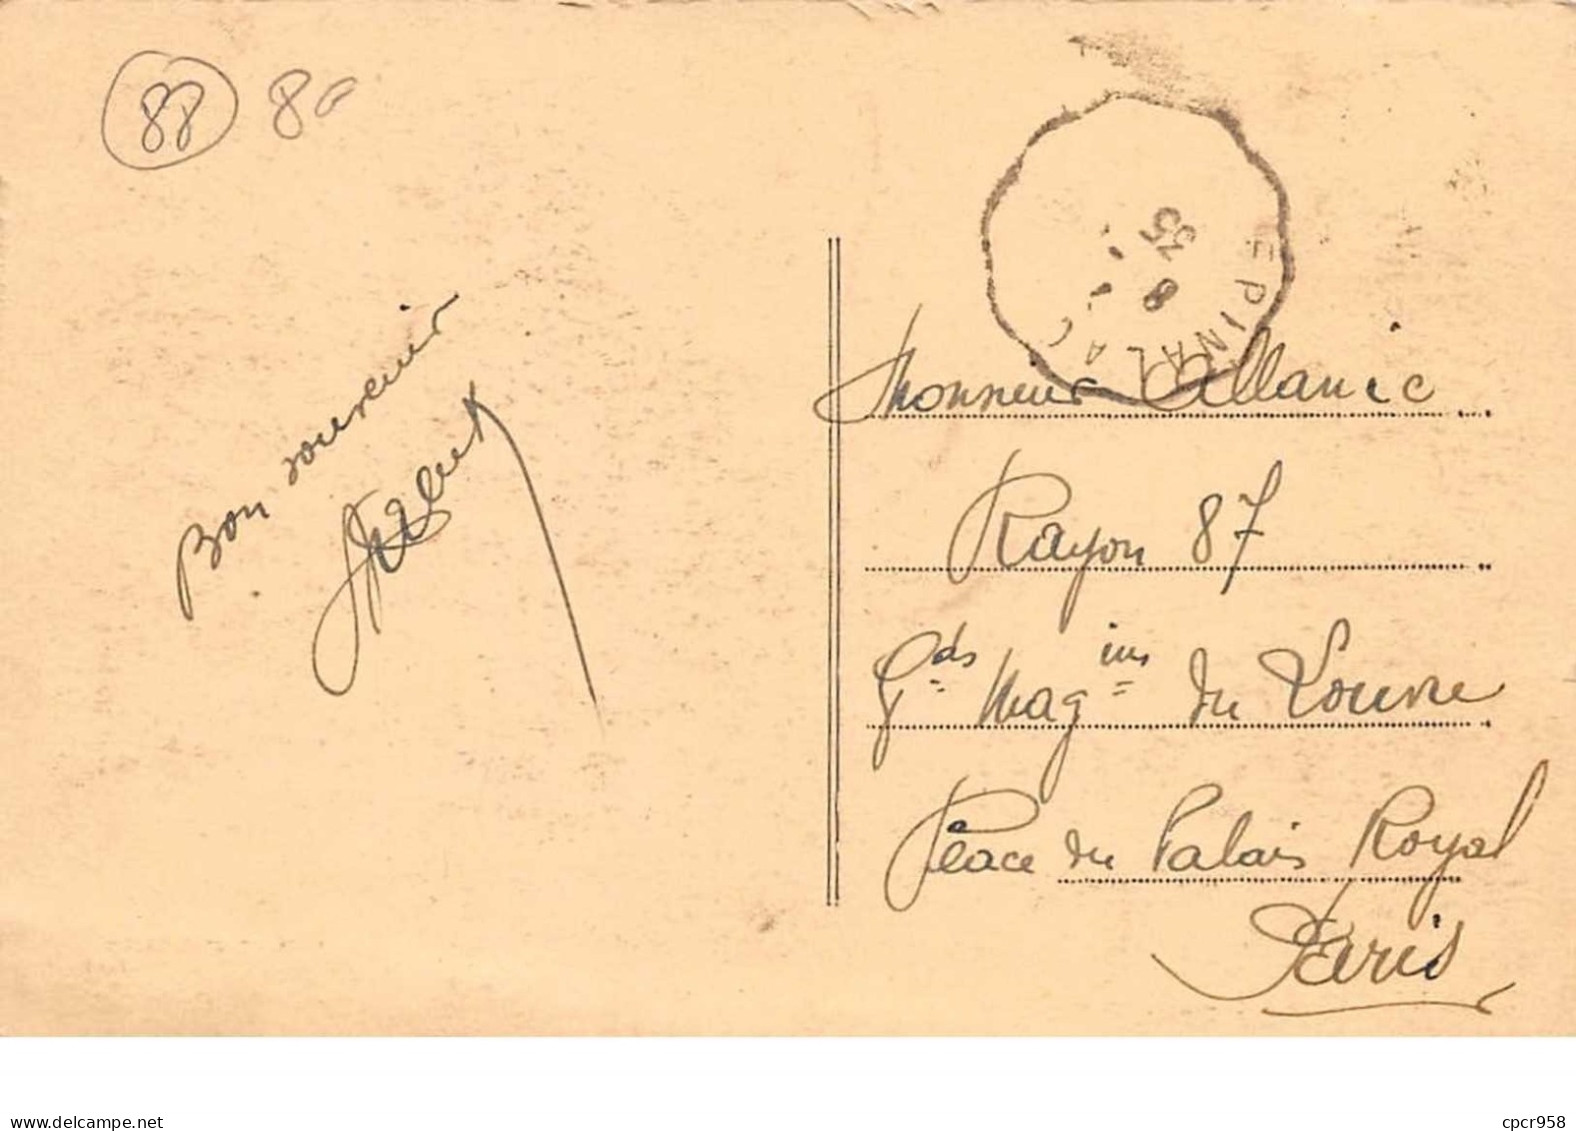 88
Bon souvenir
EPINAL A
8
35
Monsieur Allanic
Rayon 87
Gds Magins du Louvre
Place du Palais Royal
Paris
delcampe.net
cpcr958